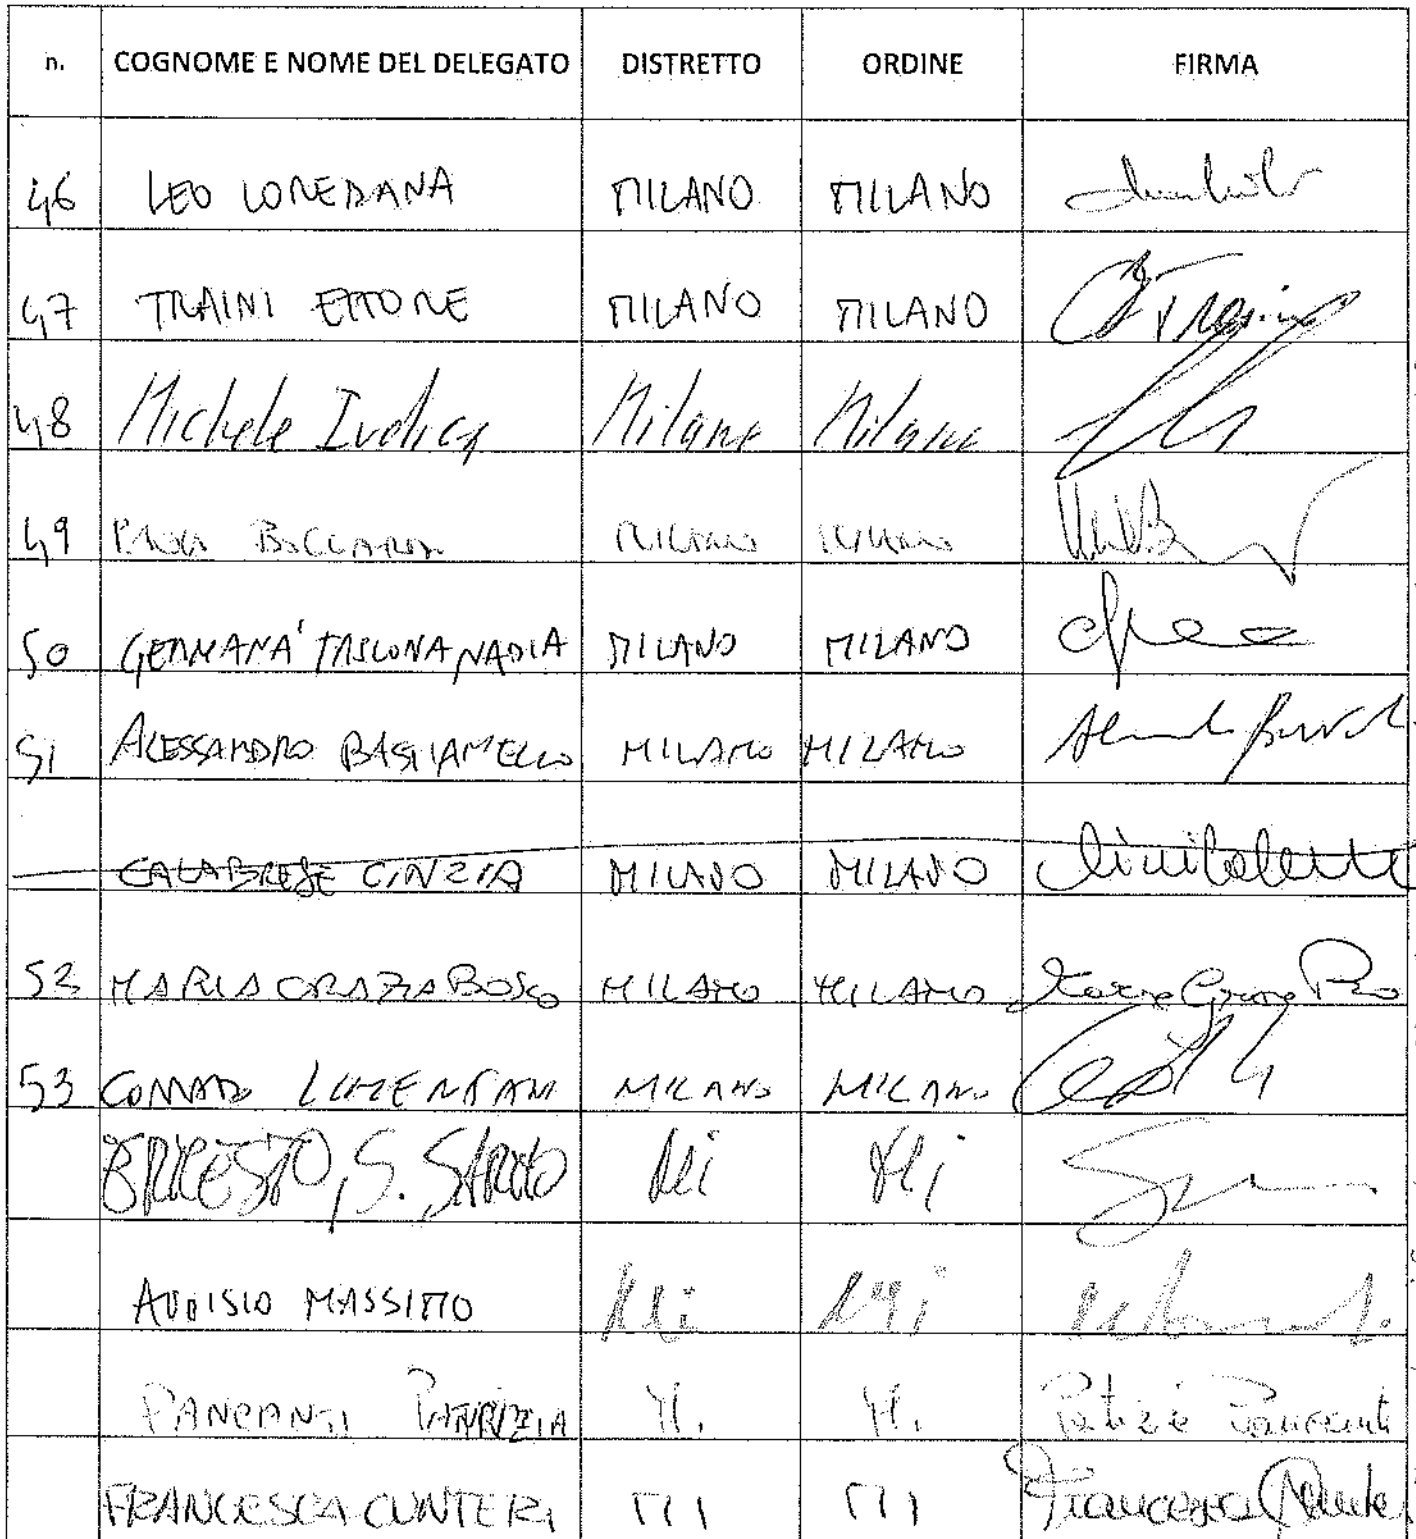 n. COGNOME E NOME DEL DELEGATO DISTRETTO ORDINE FIRMA
46 LEO LOREDANA MILANO MILANO
47 TRAINI ETTORE MILANO MILANO
48 Michele Iudica Milano Milano
49 PAOLA BOCCARDI MILANO MILANO
50 GERMANA' TASCONA NADIA MILANO MILANO
51 ALESSANDRO BASTIANELLO MILANO MILANO
CALABRESE CINZIA MILANO MILANO
52 MARIA GRAZIA BOSCO MILANO MILANO Maria Grazia
53 CORRADO LIMENTANI MILANO MILANO
ERNESTO, S. SARNO Mi Mi
AUDISIO MASSIMO Mi Mi
PANCANTI PATRIZIA MI. MI. Patrizia Pancanti
FRANCESCA CUNTERI MI MI Francesca